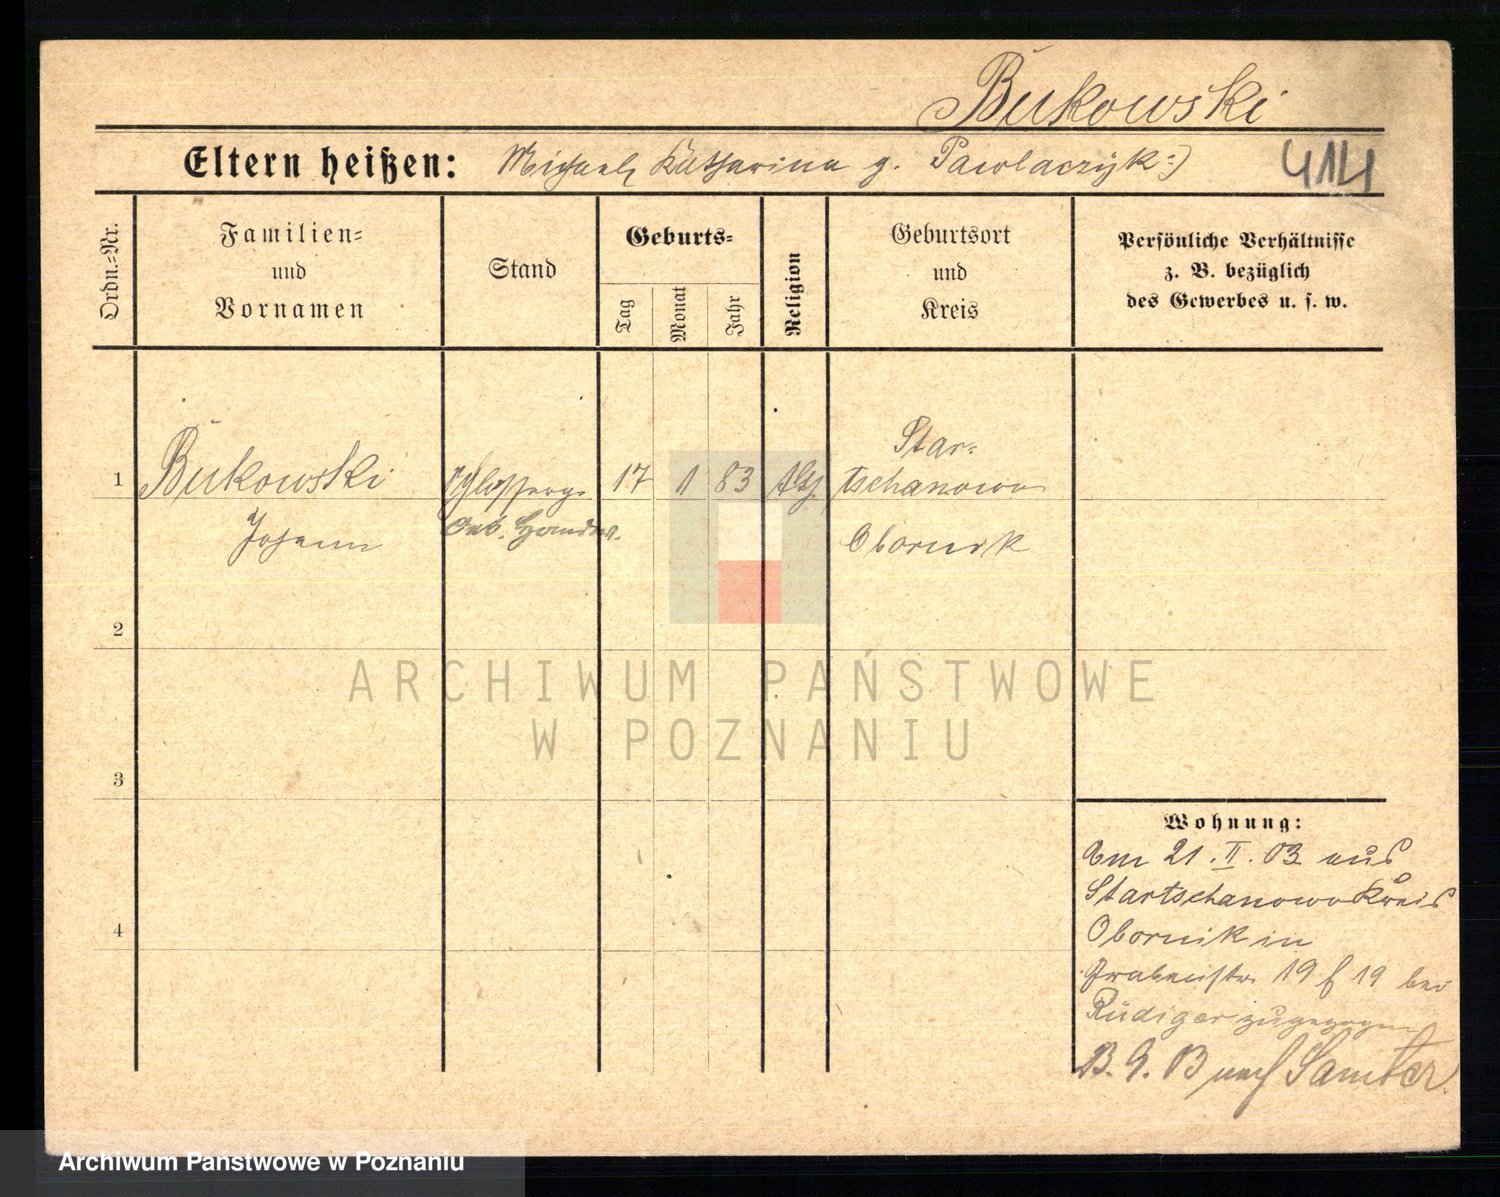 Bukowski
Eltern heißen: Michael, Katharina g. Pawlaczyk :)
414
Ordn.-Nr.
Familien-
und
Vornamen
Stand
Geburts-
Tag
Monat
Jahr
Religion
Geburtsort
und
Kreis
Persönliche Verhältnisse
z. B. bezüglich
des Gewerbes u. s. w.
1
Bukowski
Johann
Schlosserg.
17 1 83
Star-
tschanowo
Obornik
2
3
4
Wohnung:
Am 21. II. 03 aus
Startschanowo Kreis
Obornik in
Grabenstr. 19 f 19 bei
Rüdiger zugezogen
B. G. B nach Samter
ARCHIWUM PAŃSTWOWE
W POZNANIU
Archiwum Państwowe w Poznaniu